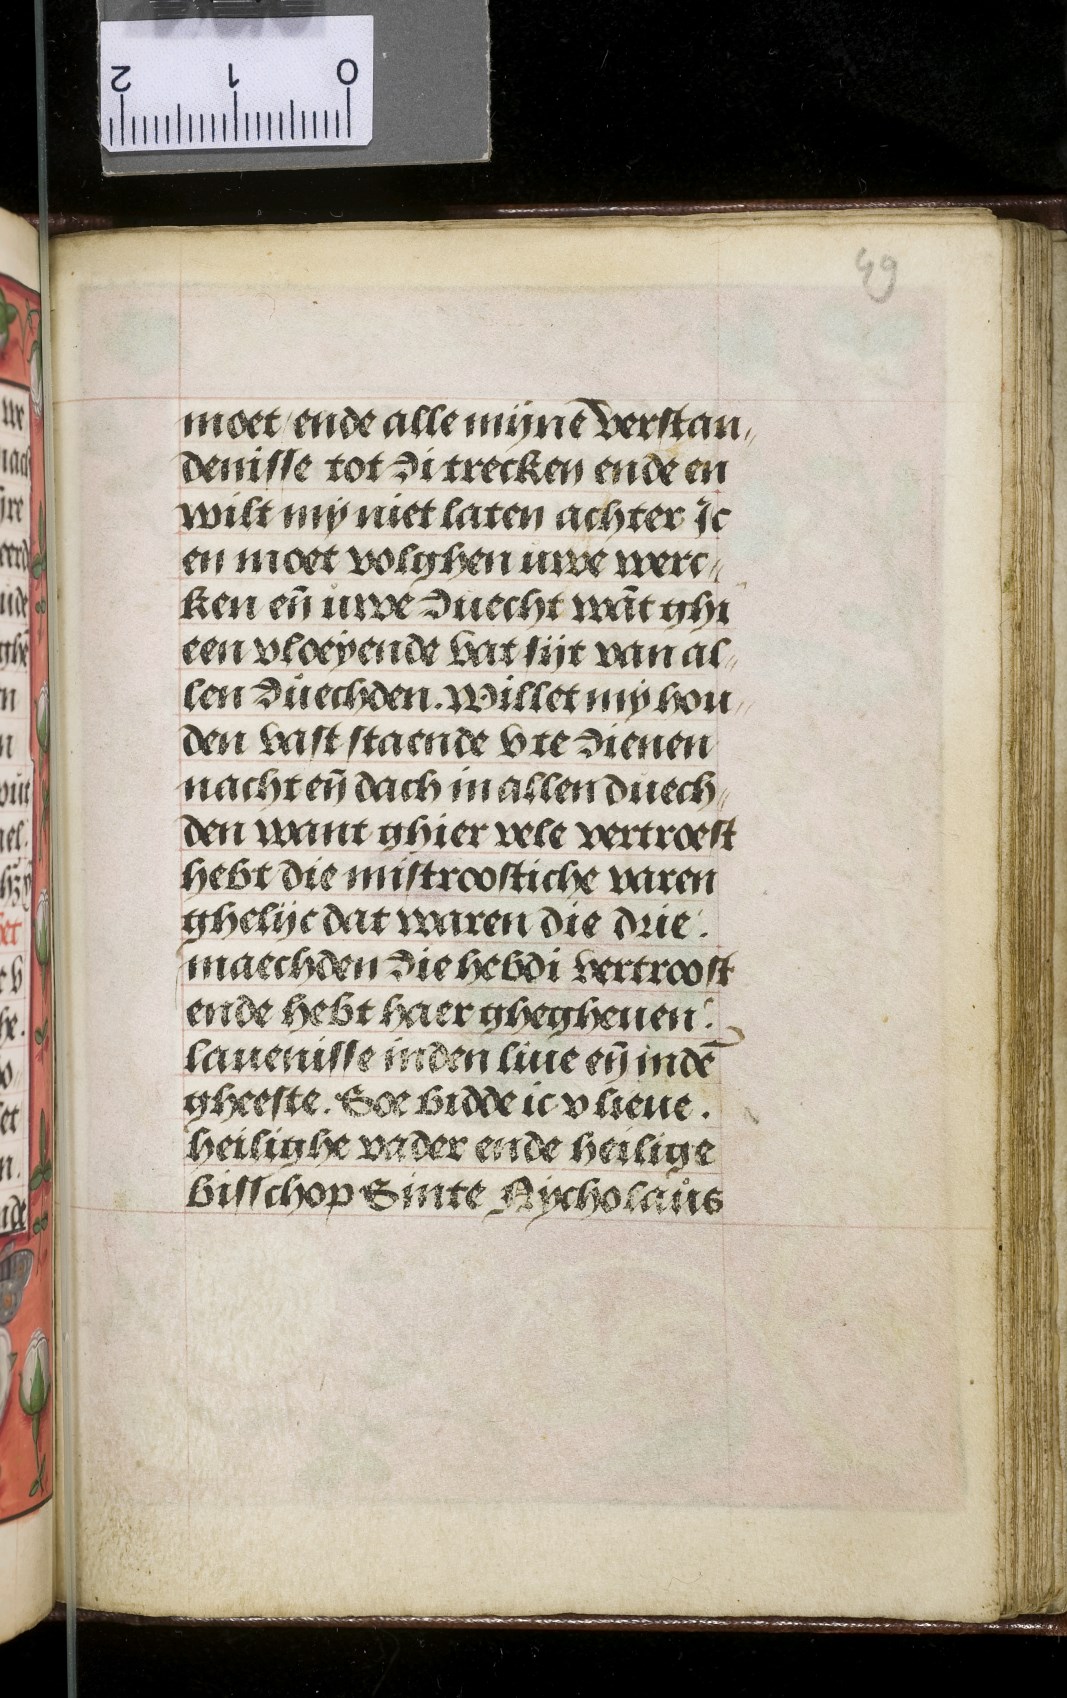 2 1 0
49
moet / ende alle mijnē verstan„
denisse tot di trecken ende en
wilt mÿ niet laten achter Ic
en moet volghen uwe werc„
ken eñ uwe duecht wāt ghi
een vloeÿende vat sijt van al„
len duechden. Willet mÿ hou„
den vast staende v te dienen
nacht eñ dach in allen duech„
den want ghi er vele vertroest
hebt die mistroostiche waren
ghelijc dat waren die drie.
maechden die hebdi vertroost
ende hebt haer ghegheuen.
lauenisse in den liue eñ in dē
gheeste. Soe bidde ic v lieue.
heilighe vader ende heilige
bisschop Sinte Nÿcholaus